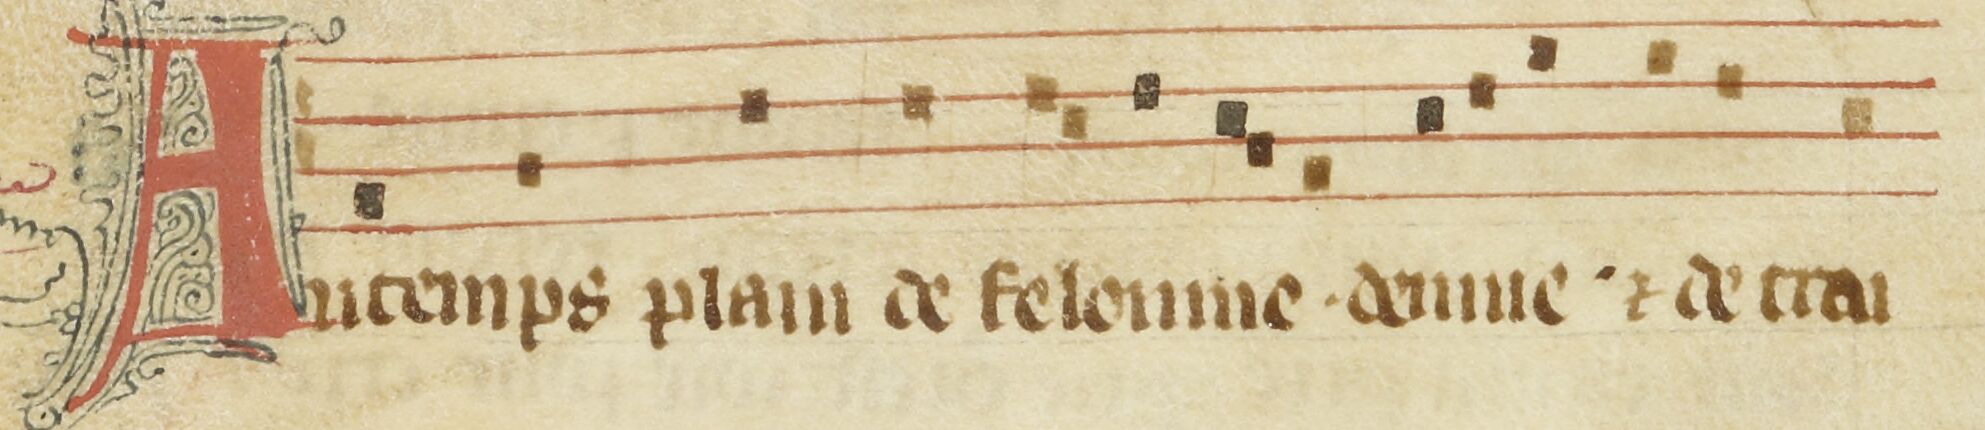 Au temps plain de felonnie · denuie · ⁊ de trai